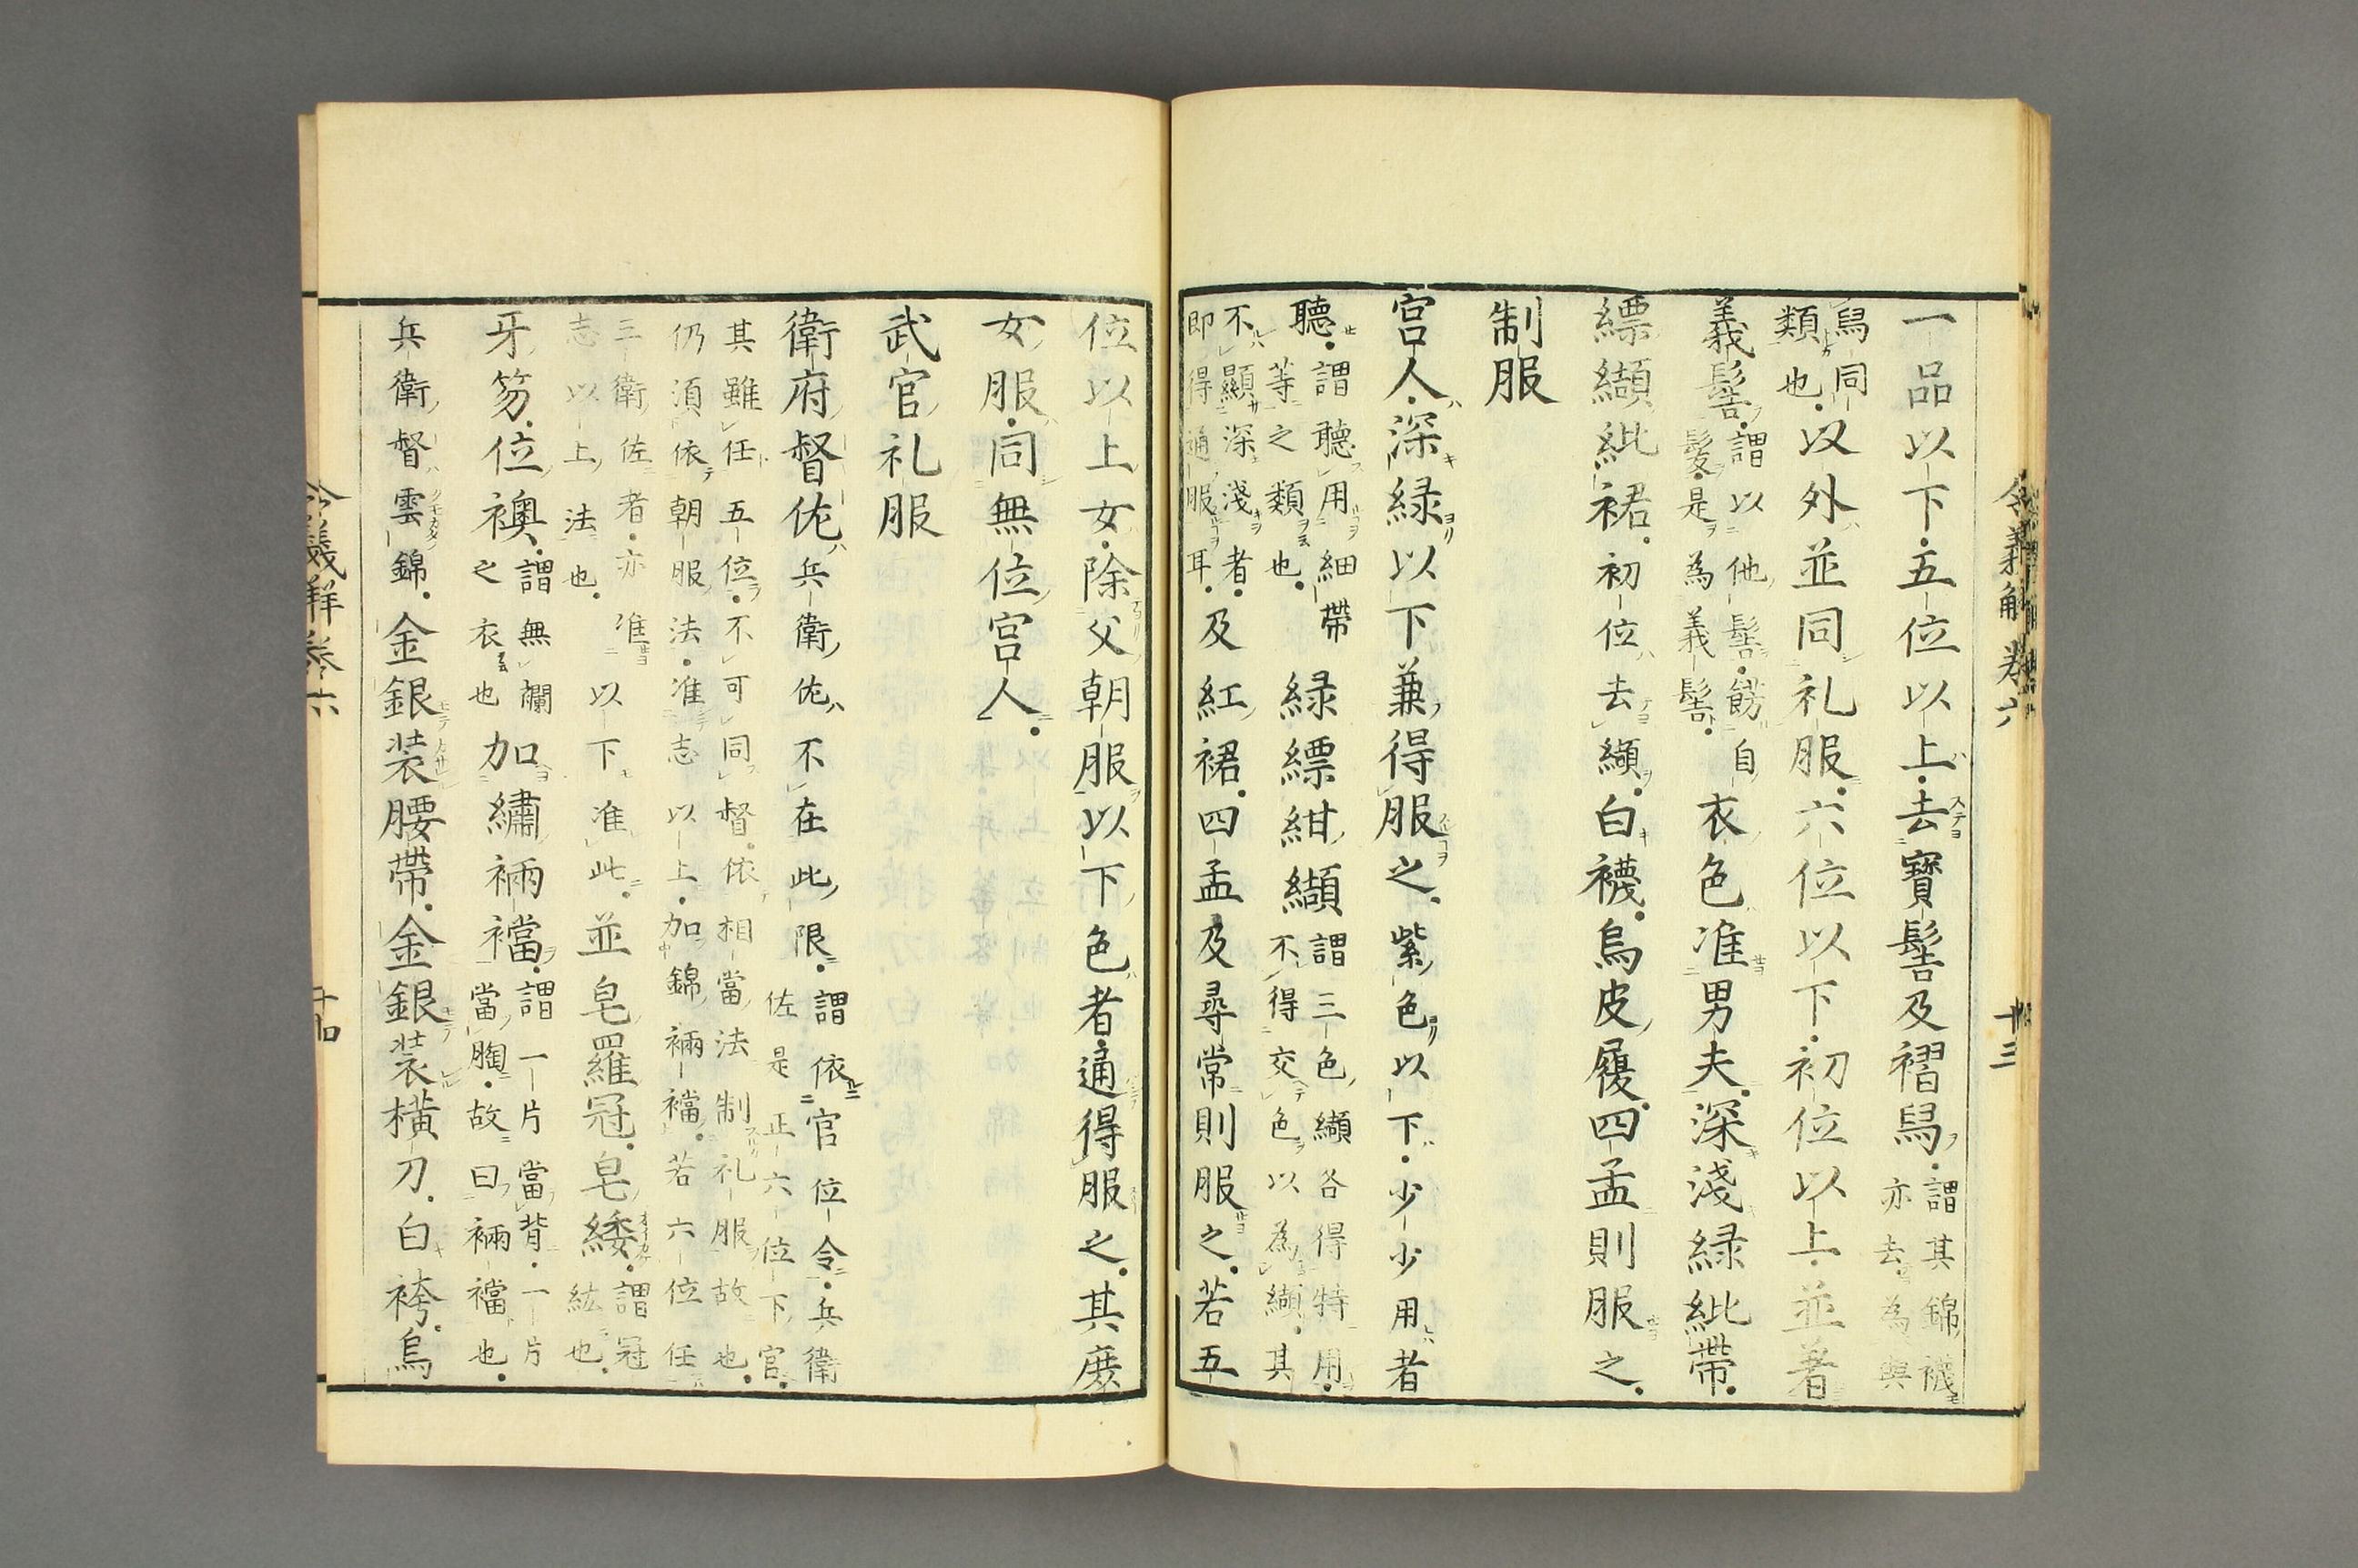 一品以下五位以上去寶髻及褶舄謂其錦襪亦去為與
舄同類也以外並同礼服六位以下初位以上並著
義髻謂以他髻餝自髪是為義髻衣色准男夫深淺緑紕帶
縹纈紕裙初位去纈白襪烏皮履四孟則服之
制服
宮人深緑以下兼得服之紫色以下少少用者
聽謂聽用細帶等之類也緑縹紺纈謂三色纈各得特用不得交色以為纈其
不顯深淺者即得通服耳及紅裙四孟及尋常則服之若五
位以上女除父朝服以下色者通得服之其庶
女服同無位宮人
武官礼服
衛府督佐兵衛佐不在此限謂依官位令兵衛佐是正六位下官
其雖任五位不可同督依相當法制礼服故也仍須依朝服法准志以上加錦裲襠若六位任
三衛佐者亦准志以上法也以下准此並皂羅冠皂緌謂冠紘也
牙笏位襖謂無襴之衣也加繡裲襠謂一片當背一片當胸故曰裲襠也
兵衛督雲錦金銀装腰帶金銀装横刀白袴烏
令義解卷六
十三
令義解卷六
十四